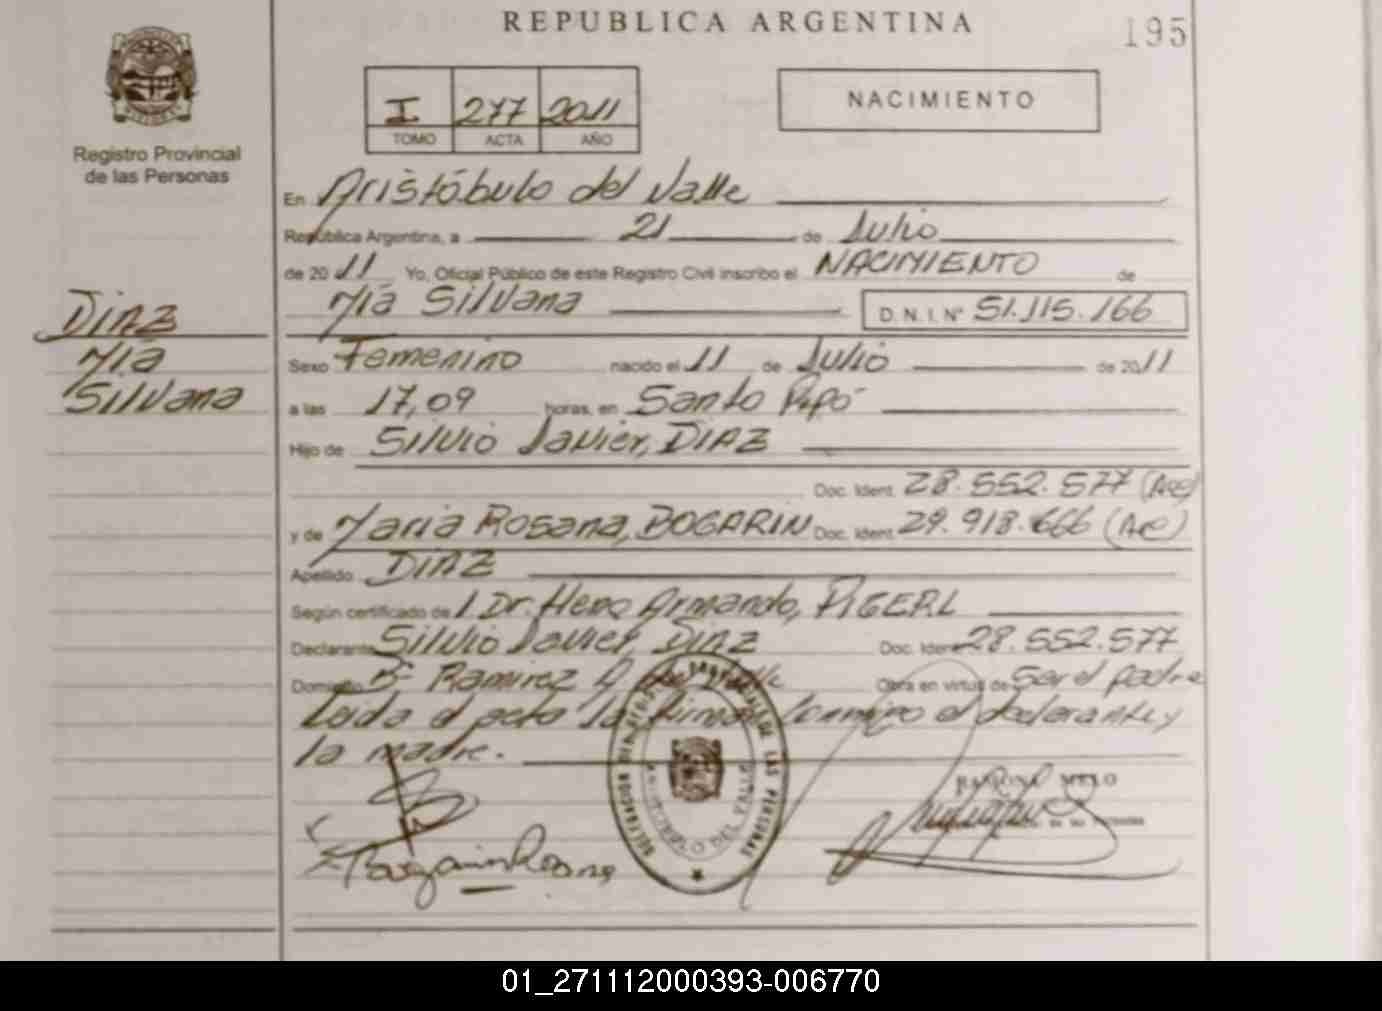 REPUBLICA ARGENTINA
195
Registro Provincial
de las Personas
I 277 2011
TOMO ACTA AÑO
NACIMIENTO
En Aristóbulo del Valle
República Argentina, a 21 de Julio
de 2011 Yo, Oficial Público de este Registro Civil inscribo el NACIMIENTO de
Mía Silvana D.N.I.Nº 51.115.166
DIAZ
Mía
Silvana
Sexo Femenino nacido el 11 de Julio de 2011
a las 17,09 horas, en Santo Pipó
Hijo de Silvio Javier, DIAZ
Doc. Ident. 28.552.577 (Arg)
y de Maria Rosana, BOGARIN Doc. Ident. 29.918.666 (Arg)
Apellido DIAZ
Según certificado de Dr. Armando, PIGERL
Declarante Silvio Javier, Diaz Doc. Ident. 28.552.577
Domicilio Bº Ramirez A. del Valle Obra en virtud de Ser el padre
Leida el acta la firman conmigo el declarante y
la madre.
RAMONA MELO
Bogarin Rosana
DELEGACION DE LAS PERSONAS
ARISTOBULO DEL VALLE
01_271112000393-006770